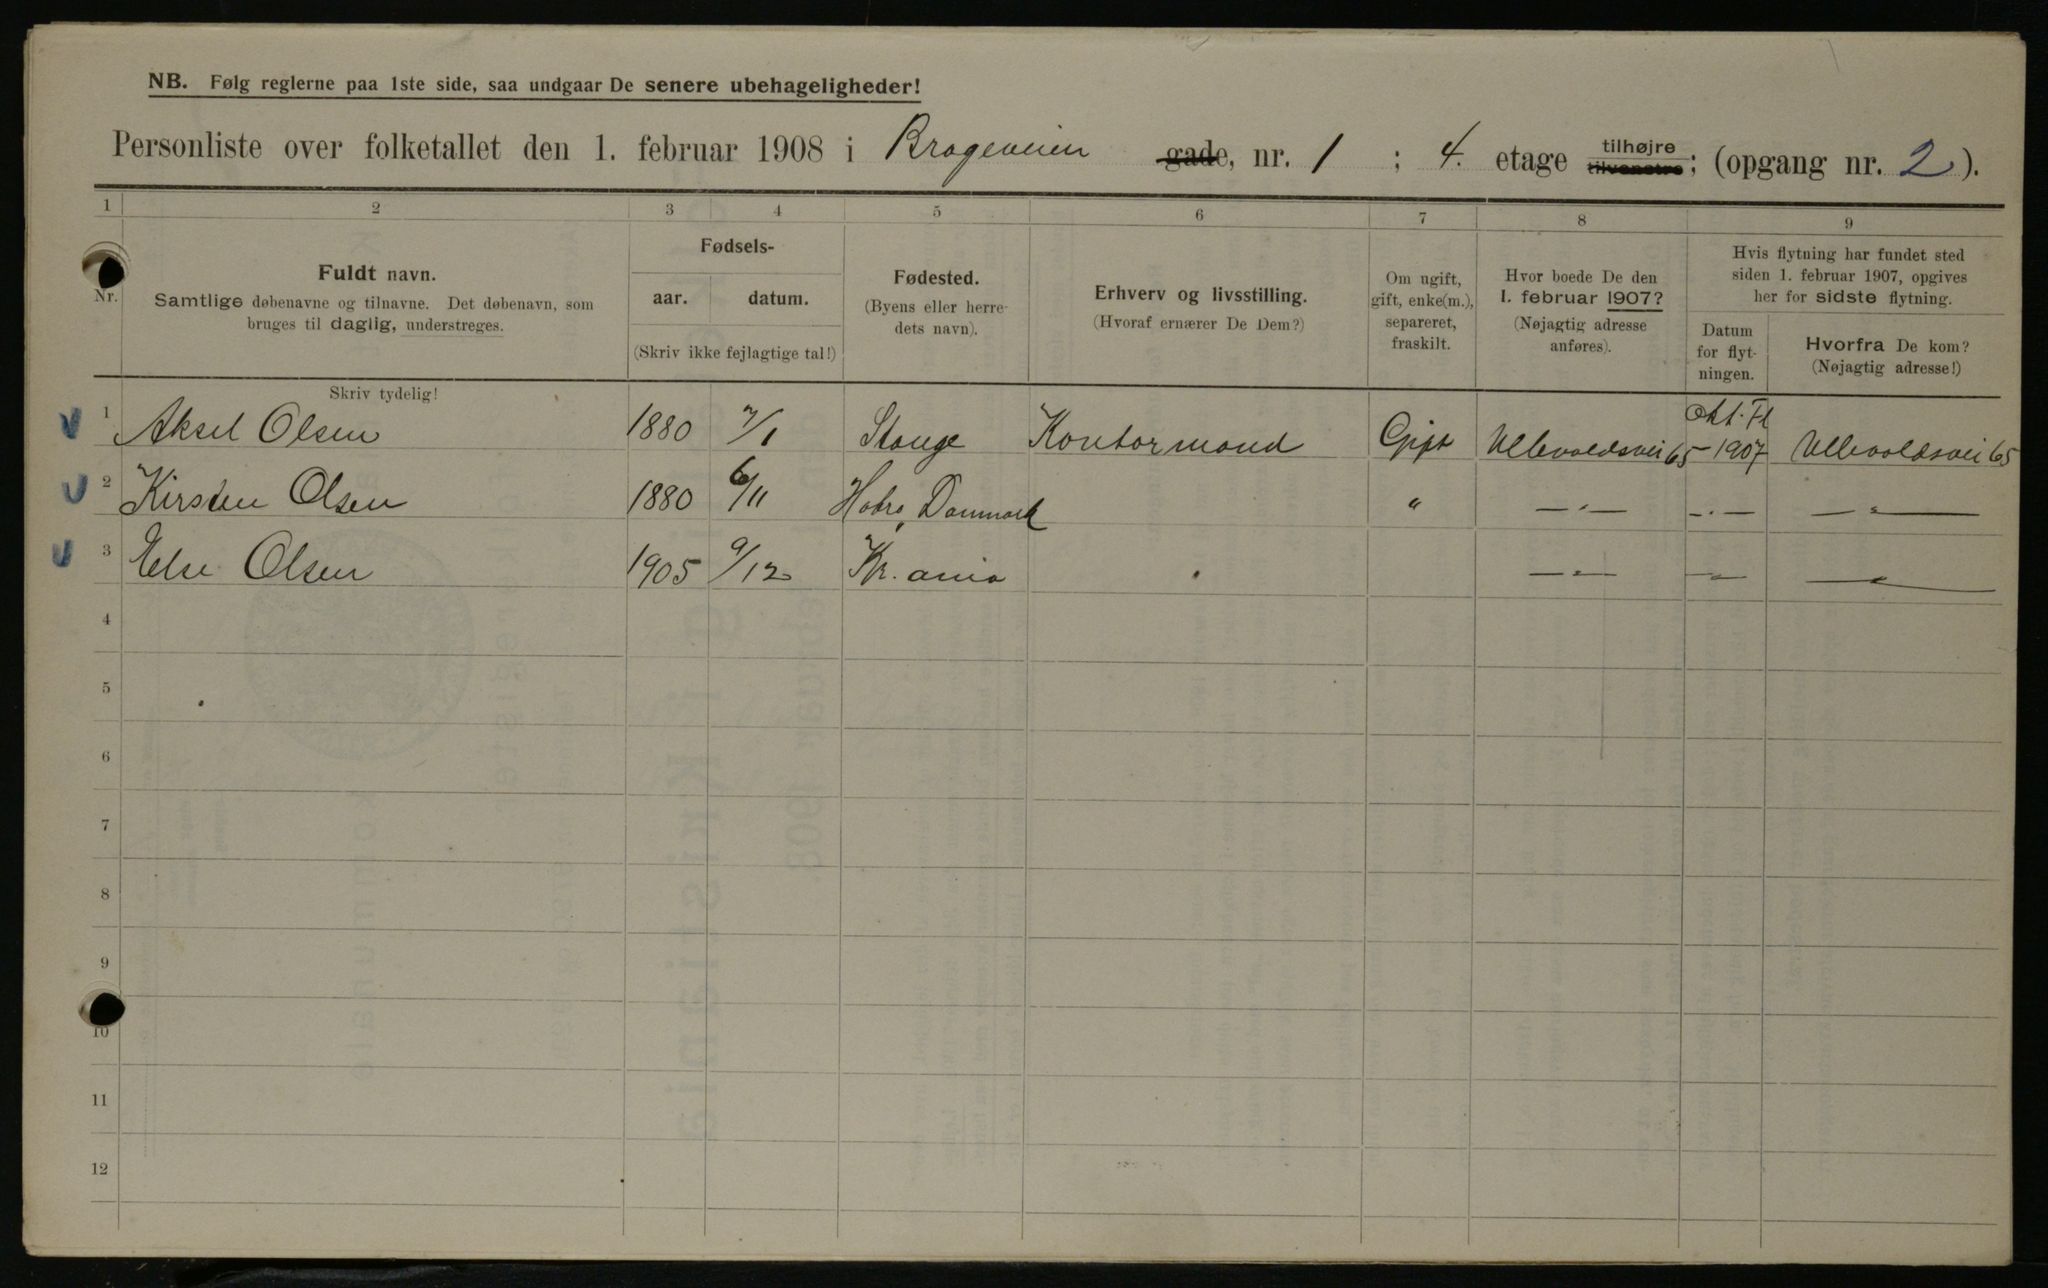 NB. Følg reglerne paa 1ste side, saa undgaar De senere ubehageligheder!
Personliste over folketallet den 1. februar 1908 i Brageveien gade, nr. 1 ; 4. etage tilhøjre tilvenstre; (opgang nr. 2).
1 2 3 4 5 6 7 8 9
Nr.
Fuldt navn.
Samtlige døbenavne og tilnavne. Det døbenavn, som
bruges til daglig, understreges.
Fødsels-
aar. datum.
(Skriv ikke fejlagtige tal!)
Fødested.
(Byens eller herre-
dets navn).
Erhverv og livsstilling.
(Hvoraf ernærer De Dem?)
Om ugift,
gift, enke(m.),
separeret,
fraskilt.
Hvor boede De den
1. februar 1907?
(Nøjagtig adresse
anføres).
Hvis flytning har fundet sted
siden 1. februar 1907, opgives
her for sidste flytning.
Datum
for flyt-
ningen.
Hvorfra De kom?
(Nøjagtig adresse!)
Skriv tydelig!
1 Aksel Olsen 1880 7/1 Stange Kontormand Gift Ullevoldsvei 65 Okt. Fl 1907 Ullevoldsvei 65
2 Kirsten Olsen 1880 6/11 Hobro, Danmark " — " — — " — — " —
3 Else Olsen 1905 9/12 Kr. ania — " — — " — — " —
4
5
6
7
8
9
10
11
12